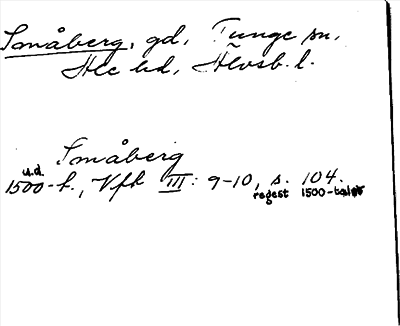 Småberg, gd, Tunge sn,
Ale hd, Älvsb. l.
Småberg
u.d.
1500-t., Vfk III: 9-10, s. 104.
regest 1500-talet